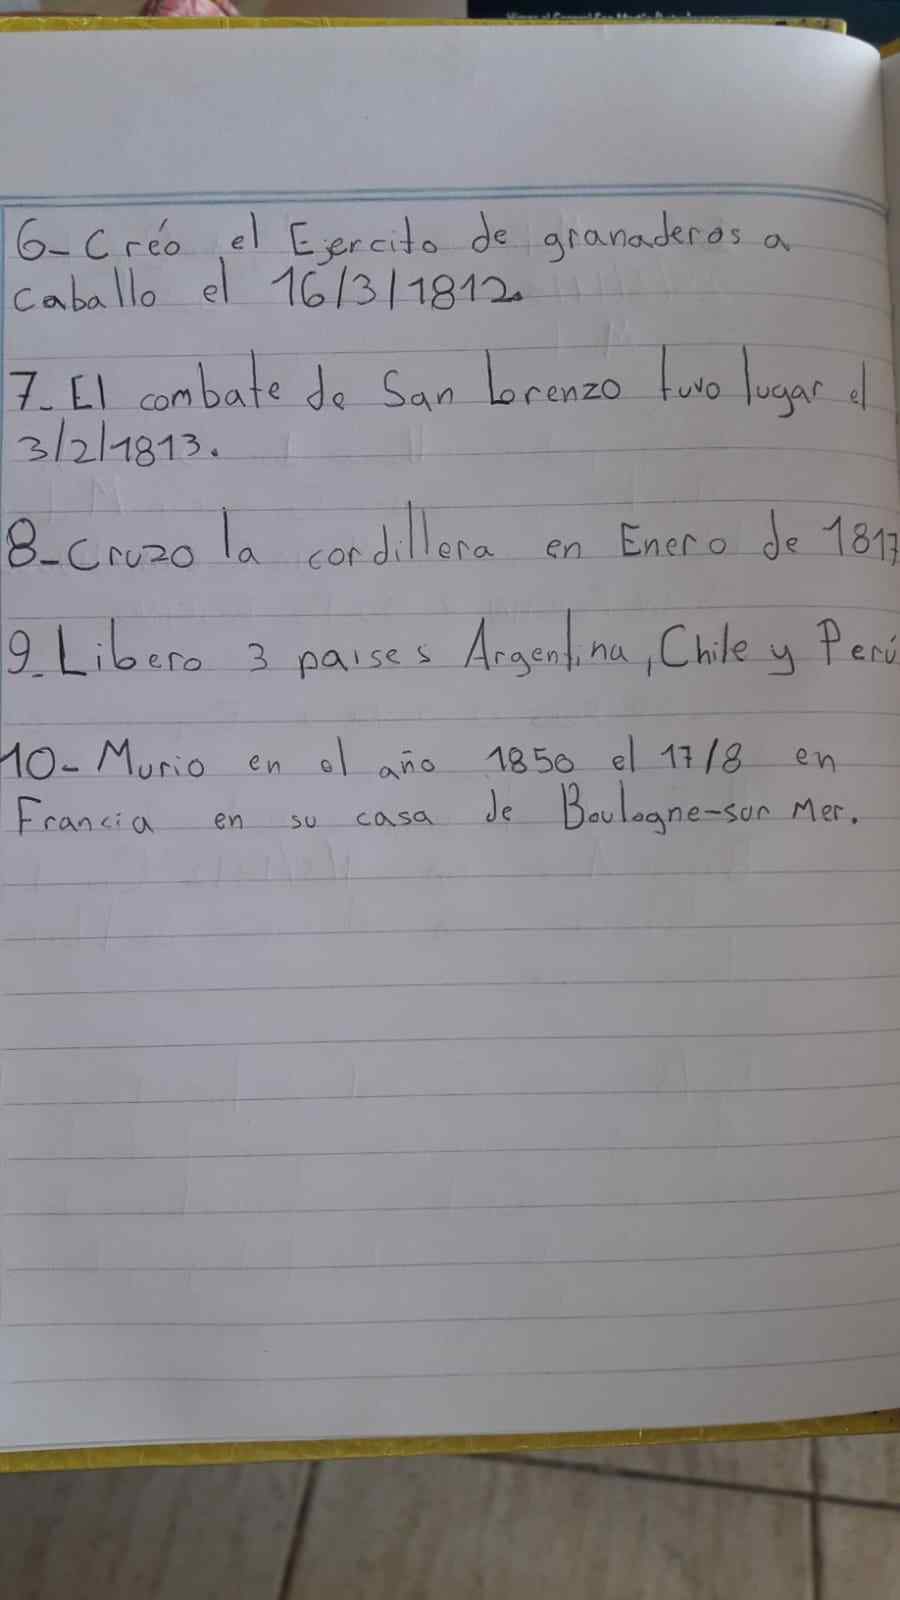 6- Creó el Ejercito de granaderos a
caballo el 16/3/1812.
7- El combate de San Lorenzo tuvo lugar el
3/2/1813.
8- Cruzo la cordillera en Enero de 1817
9- Libero 3 paises Argentina, Chile y Perú
10- Murio en el año 1850 el 17/8 en
Francia en su casa de Boulogne-sur Mer.